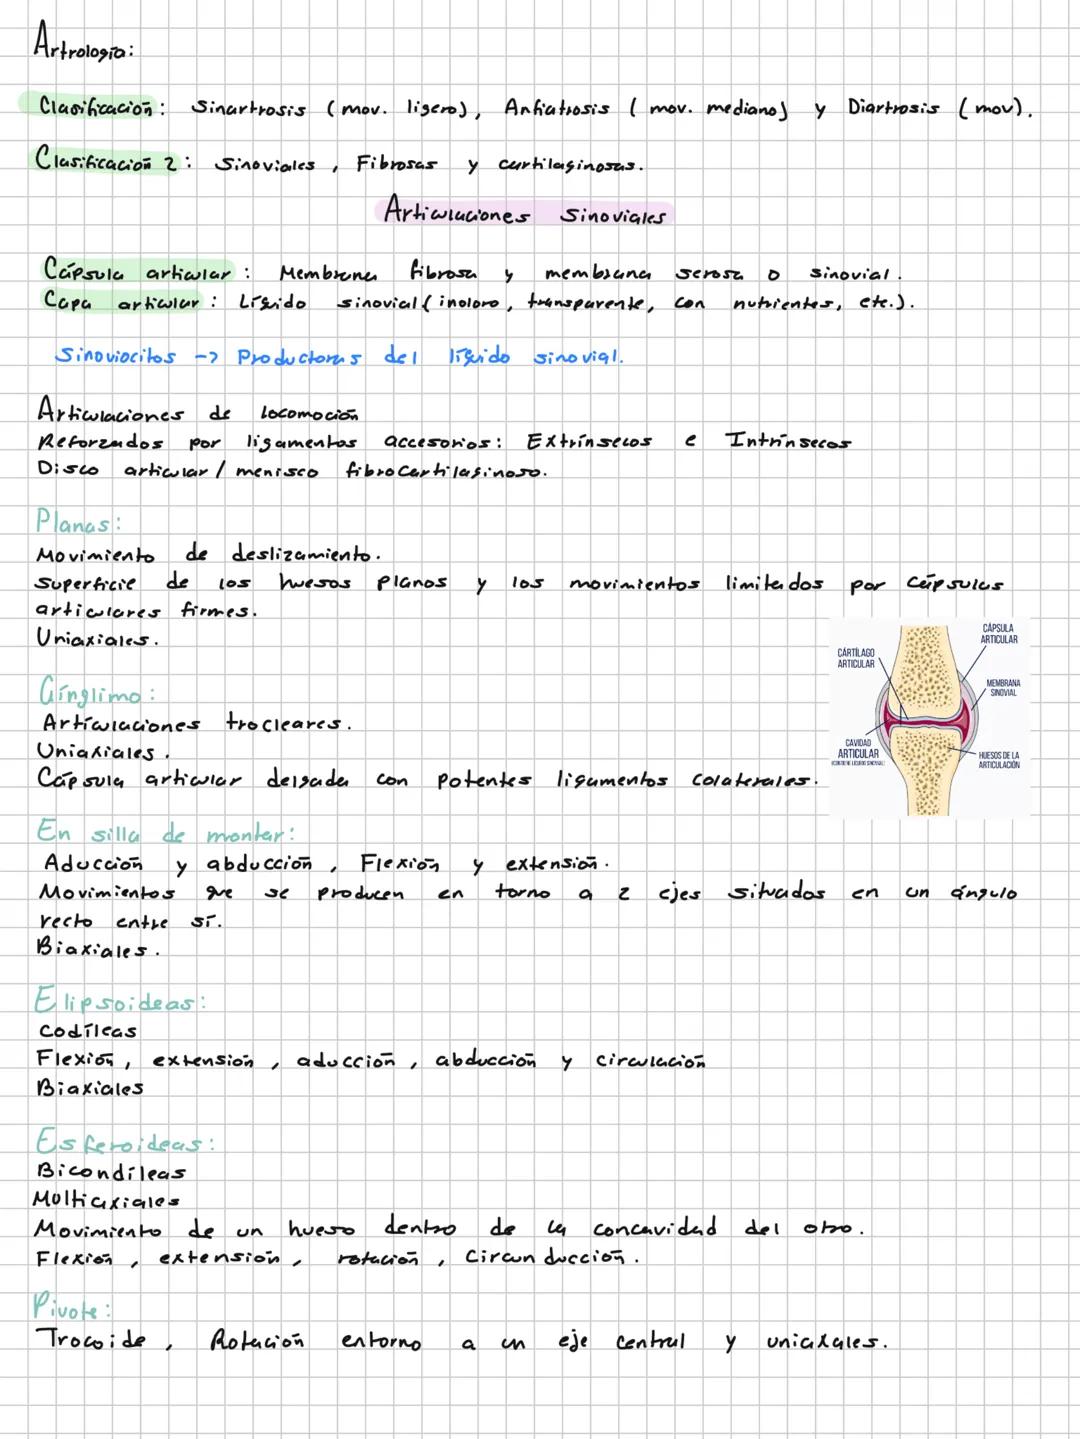 Artrología:
Clasificación: Sinartrosis (mov. ligero), Anfiatrosis (mov. mediano) y Diartrosis (mov).
Clasificación 2: Sinoviales, Fibrosas y cartilaginosas.
Articulaciones Sinoviales
Cápsula articular: Membrana fibrosa y membrana serosa o sinovial.
Capa articular: Líquido sinovial (inoloro, transparente, con nutrientes, etc.).
Sinoviocitos -> Productoras del líquido sinovial.
Articulaciones de locomoción
Reforzados por ligamentos accesorios: Extrínsecos e Intrínsecos
Disco articular/menisco fibrocartilaginoso.
Planas:
Movimiento de deslizamiento.
Superficie de los huesos planos y los movimientos limitados por cápsulas
articulares firmes.
Uniaxiales.
CÁPSULA
ARTICULAR
CÁRTÍLAGO
ARTICULAR
MEMBRANA
SINOVIAL
CAVIDAD
ARTICULAR
(CONTIENE LÍQUIDO SINOVIAL)
HUESOS DE LA
ARTICULACIÓN
Gínglimo:
Artículaciones trocleares.
Uniaxiales.
Cápsula articular delgada con potentes ligamentos colaterales.
En silla de montar:
Aducción y abducción, Flexión y extensión.
Movimientos que se producen en torno a 2 ejes situados en un ángulo
recto entre sí.
Biaxiales.
Elipsoideas:
Codíleas
Flexión, extensión, aducción, abducción y circulación
Biaxiales
Esferoideas:
Bicondíleas
Multiaxiales
Movimiento de un hueso dentro de la concavidad del otro.
Flexión, extensión, rotación, Circunducción.
Pivote:
Trocoide, Rotación entorno a un eje central y uniaxales.